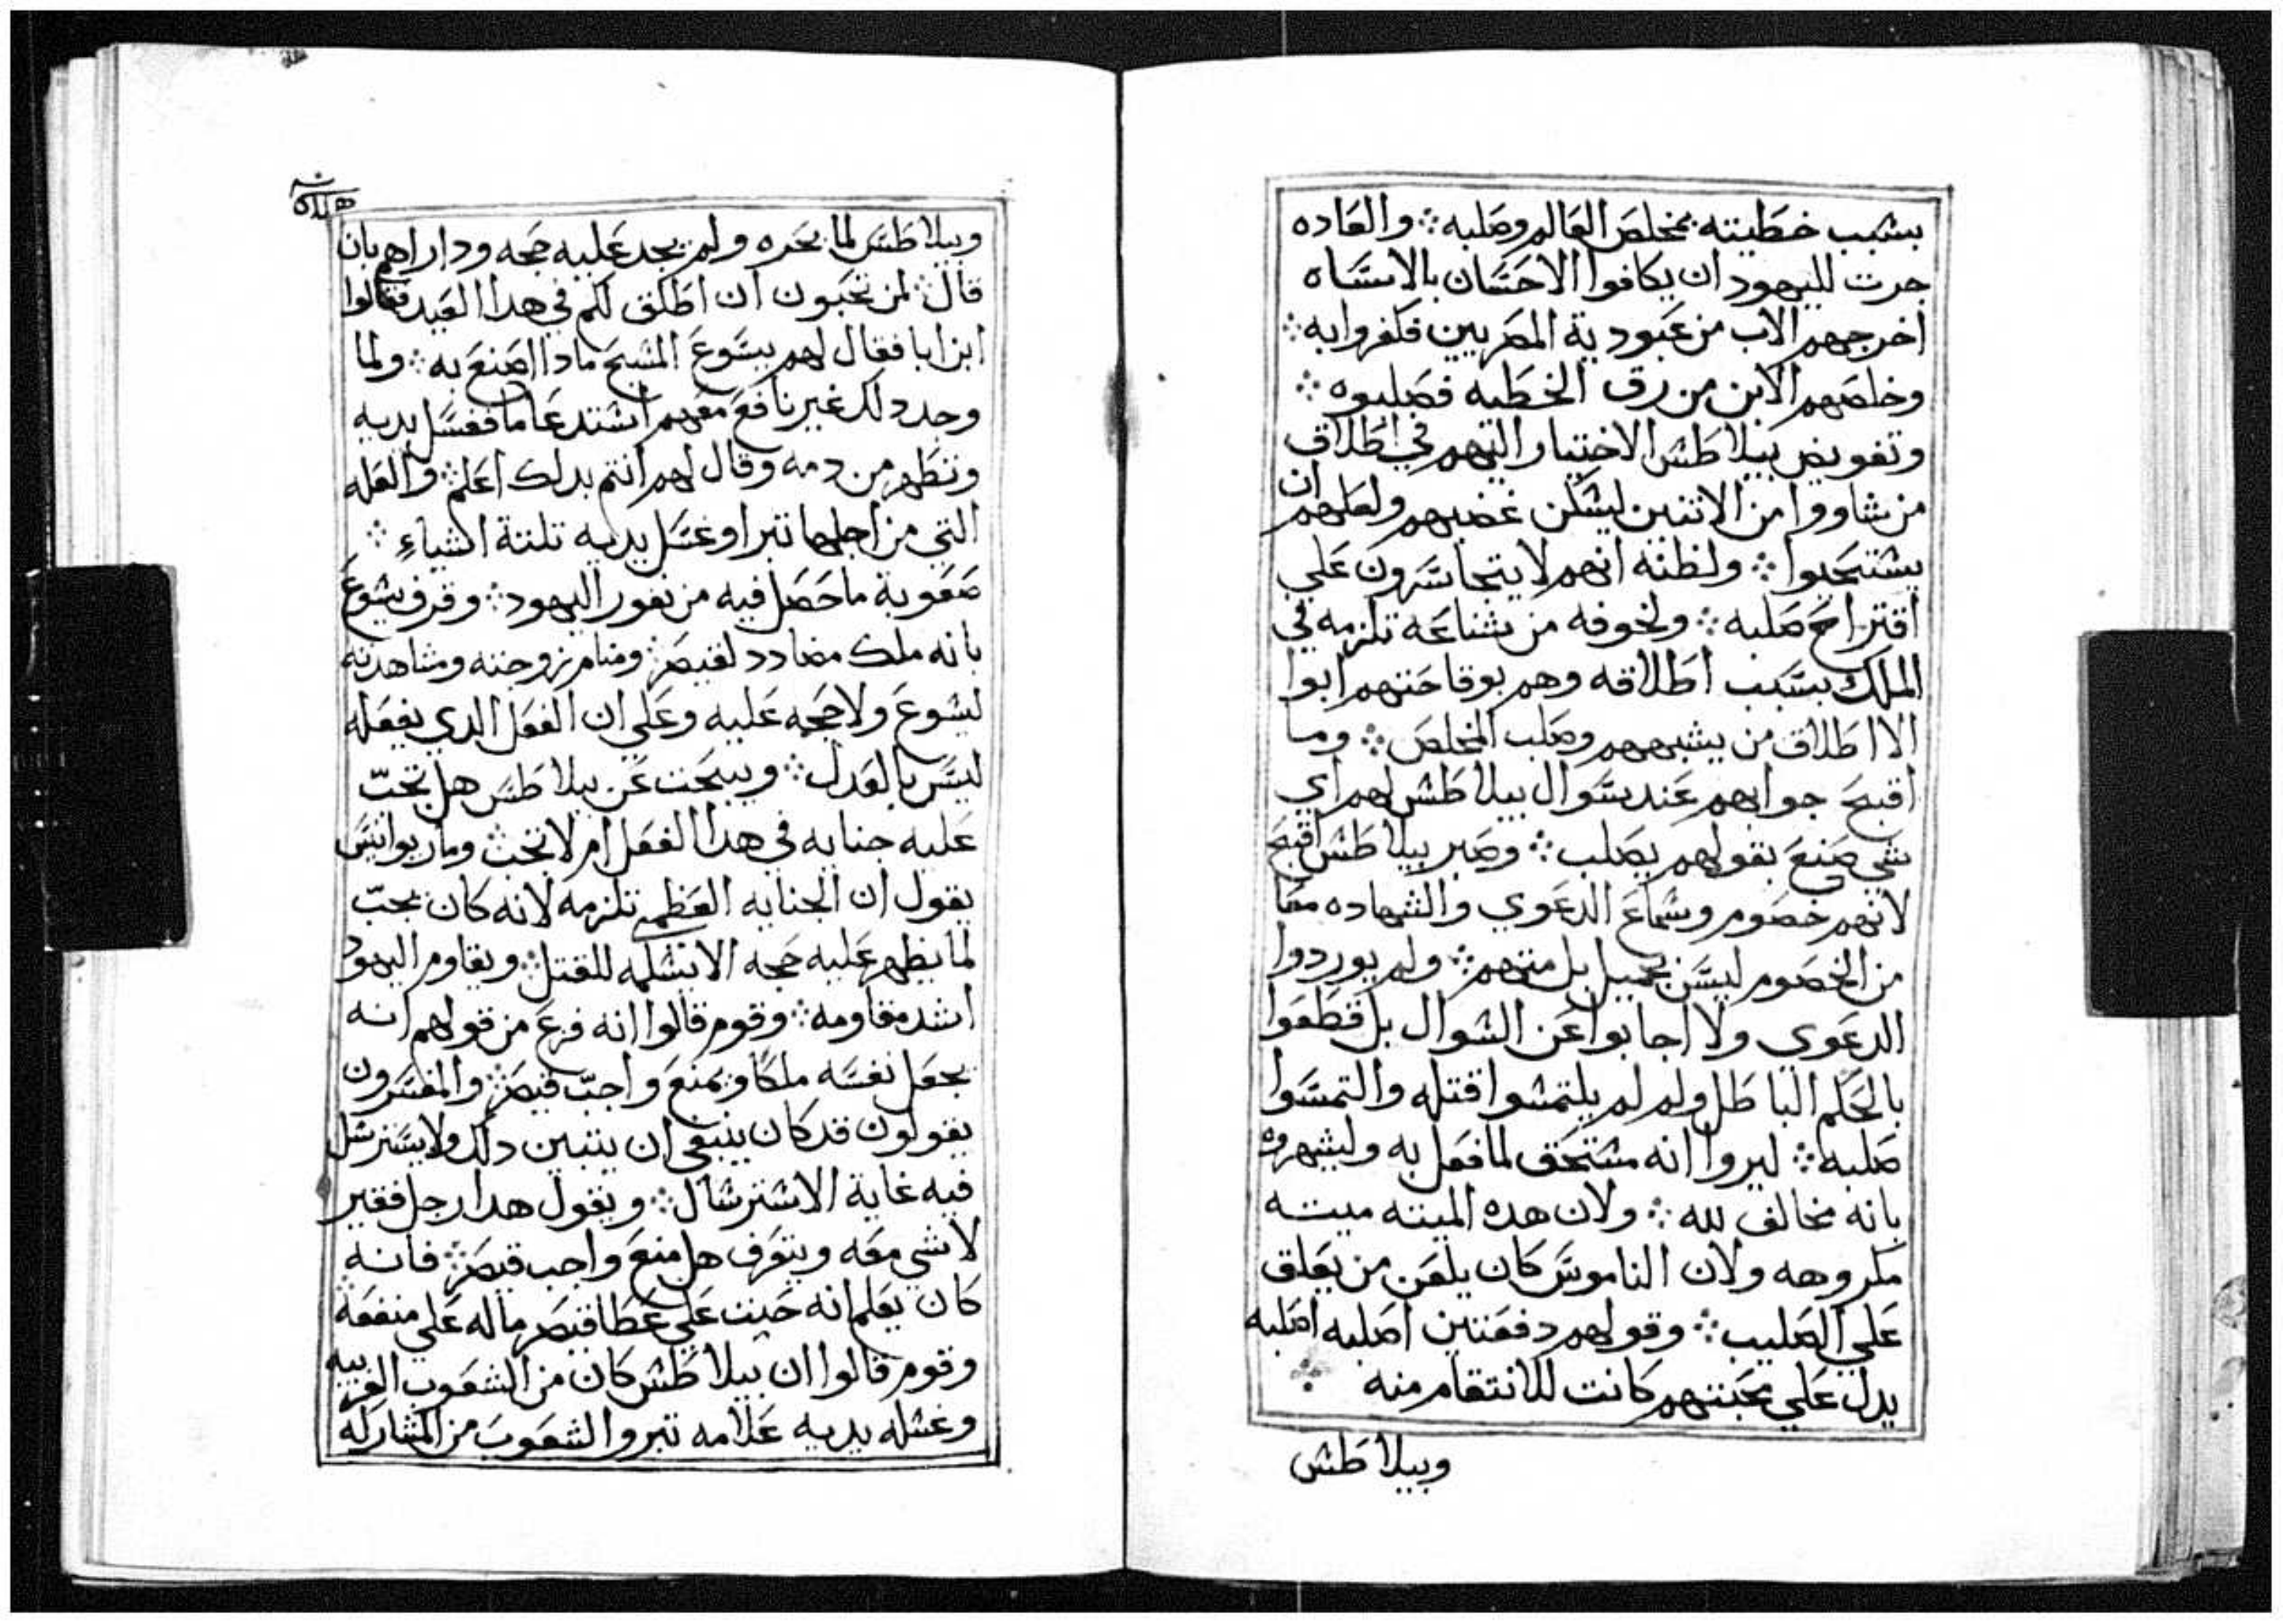 بسبب خطيته بمخلص العالم وصلبه ∴ والعاده
جرت لليهود ان يكافوا الاحسان بالاساه
اخرجهم الاب من عبودية المصريين فكفروا به ∴
وخلصهم الابن من رق الخطيه فصلبوه ∴
وتفويض بيلاطس الاختيار اليهم في اطلاق
من شاووا من الاتنين ليسكن غضبهم ولعلهم ان
يستحيوا ∴ ولظنه انهم لا يتجاسرون علي
اقتراح صلبه ∴ ولخوفه من شناعه تلزمه في
الملك بسبب اطلاقه وهم بوقاحتهم ابوا
الا اطلاق من يشبههم وصلب المخلص ∴ وما
اقبح جوابهم عند سوال بيلاطس لهم اي
شي صنع بقولهم يصلب ∴ وصبر بيلاطس اقبح
لانهم خصوم وسماع الدعوي والشهاده معا
من الخصوم ليس بجميل بل متهم ∴ ولم يوردوا
الدعوي ولا اجابوا عن السوال بل قطعوا
بالحكم الباطل ولم لم يلتمسوا قتله والتمسوا
صلبه ∴ ليروا انه مستحق لما فعل به وليشهروه
بانه مخالف لله ∴ ولان هده الميته ميته
مكروهه ولان الناموس كان يلعن من يعلق
علي الصليب ∴ وقولهم دفعتين اصلبه اصلبه
يدل علي محبتهم كانت للانتقام منه ∴
وبيلاطس
وبيلاطس لما بحره ولم يجد عليه حجه وداراهم بان
قال ∴ لمن تحبون ان اطلق لكم في هدا العيد فقالوا
ابن ابا فقال لهم يسوع المسيح مادا اصنع به ∴ ولما
وجد دلك غير نافع معهم استدعا ما فغسل يديه
وتطهر من دمه وقال لهم انتم بدلك اعلم ∴ والعله
التي من اجلها تبرا وغسل يديه تلتة اشياء ∴
صعوبة ما حصل فيه من نفور اليهود ∴ وقرف يسوع
بانه ملك مضادد لقيصر ∴ ومنام زوجته ومشاهدته
ليسوع ولا حجه عليه وعلي ان الفعل الدي يفعله
ليس بالعدل ∴ ويبحت عن بيلاطس هل تجب
عليه جنايه في هدا الفعل ام لا تجب ∴ ومار يوانيس
يقول ان الجنايه العظمي تلزمه لانه كان يجب
لما يظهر عليه حجه الا يسلمه للقتل ∴ ويقاوم اليهود
اشد مقاومه ∴ وقوم قالوا انه فزع من قولهم انه
يجعل نفسه ملكا ويمنع واجب قيصر ∴ والمفسرون
يقولون قد كان ينبغي ان يتبين دلك ولا يسترسل
فيه غاية الاسترسال ∴ ويقول هدا رجل فقير
لا شي معه ويتعرف هل منع واجب قيصر ∴ فانه
كان يعلم انه حيث علي عطا قيصر ماله علي منفعة
وقوم قالوا ان بيلاطس كان من الشعوب الغريبه
وغسله يديه علامه تبرو الشعوب من المشاركه